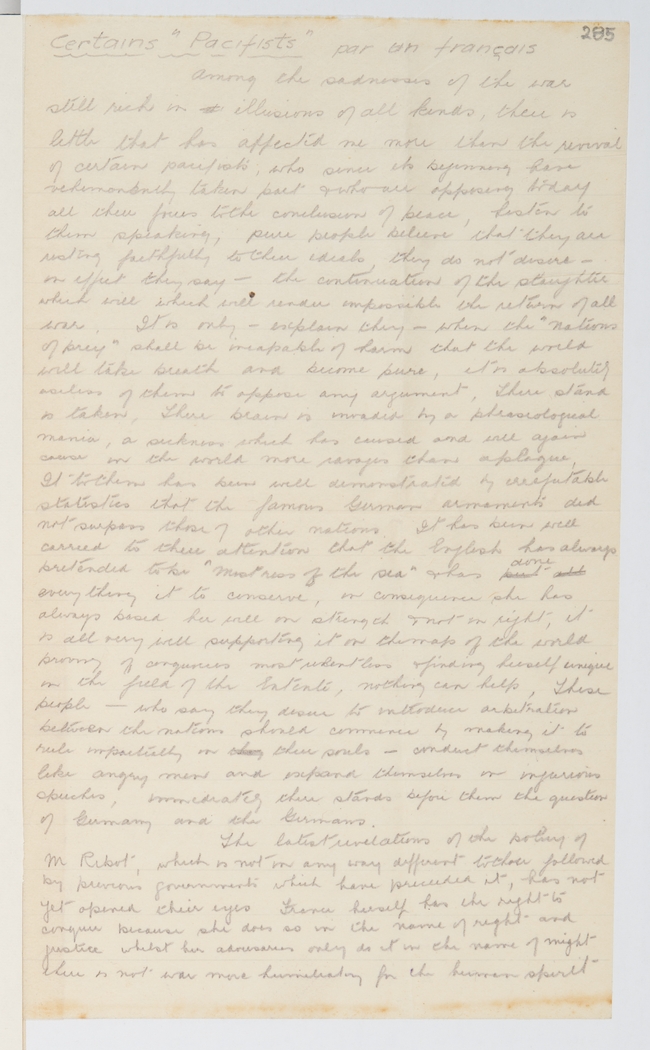 285
Certains "Pacifists" par un français
Among the sadnesses of the war
still rich in illusions of all kinds, there is
little that has affected me more then the revival
of certain pacifists, who since its beginning have
vehemently taken part & who are opposing today
all their forces to the conclusion of peace, listen to
them speaking, pure people believe that they are
resting faithfully to their ideals, they do not desire –
in effect they say – the continuation of the slaughter
which will which will render impossible the return of all
war. It is only – explain they – when the "nations
of prey" shall be incapable of harm that the world
will take breath and become pure, it is absolutely
useless of them to oppose any argument, There stand
is taken, There brain is invaded by a phraseological
mania, a sickness which has caused and will again
cause in the world more ravages than a plague,
It to them has been well demonstrated by irrefutable
statistics that the famous German armaments did
not surpass those of other nations. It has been well
carried to their attention that the English has always
pretended to be "Mistress of the sea" & has done
everything it to conserve, in consequence she has
always based her will on strength & not on right, it
is all very well supporting it on the map of the world
proving of conqueries most relentless & finding herself unique
in the field of the Entente, nothing can help, These
people – who say they desire to introduce arbitration
between the nations should commence by making it to
rule impartially in their souls – conduct themselves
like angry men and expand themselves in injurious
speeches, immediately there stands before them the question
of Germany and the Germans.
The latest revelations of the policy of
M Ribot, which is not in any way different to those followed
by previous governments which have preceded it, has not
yet opened their eyes France herself has the right to
conquer because she does so in the name of right and
justice whilst her adversaries only do it in the name of might
there is not war more humiliating for the human spirit